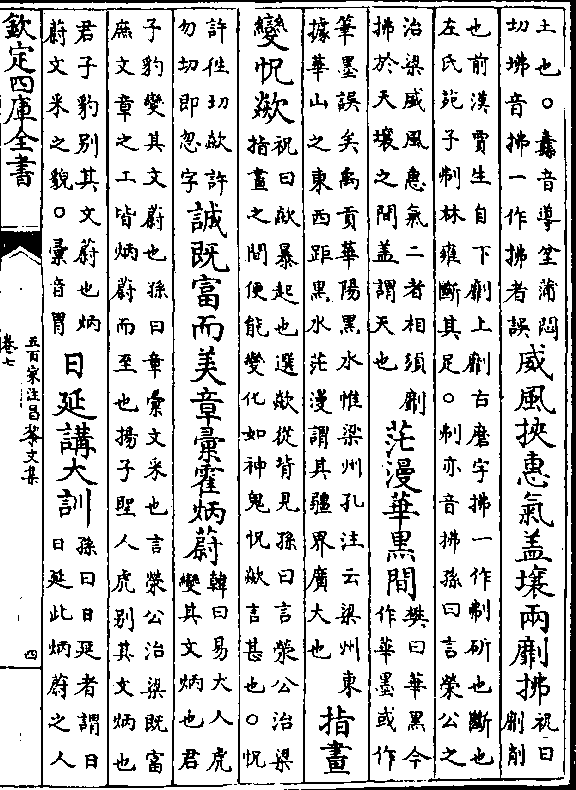 土也○纛音導坌蒲悶
切坲音拂一作拂者誤
威風挾惠氣盖壤兩劘拂
祝曰
劘削
也前漢賈生自下劘上劘古磨字拂一作刜斫也斷也
左氏苑子刜林雍斷其足○刜亦音拂孫曰言榮公之
治梁威風惠氣二者相須劘
拂於天壤之間盖謂天也
茫漫華黒間
樊曰華黒今
作華墨或作
筆墨誤矣禹貢華陽黒水惟梁州孔注云梁州東
據華山之東西距黒水茫漫謂其疆界廣大也
指畫
變怳欻
祝曰欻暴起也選欻從背見孫曰言榮公治梁
指畫之間便能變化如神鬼怳欻言甚也○怳
許徃切欻許
勿切即忽字
誠既富而美章彚霍炳蔚
韓曰易大人虎
變其文炳也君
子豹變其文蔚也孫曰章彚文采也言榮公治梁既富
庶文章之工皆炳蔚而至也揚子聖人虎别其文炳也
君子豹别其文蔚也炳
蔚文采之貌○彚音胃
日延講大訓
孫曰日延者謂日
日延此炳蔚之人
欽定四庫全書
五百家注昌黎文集
卷七
四